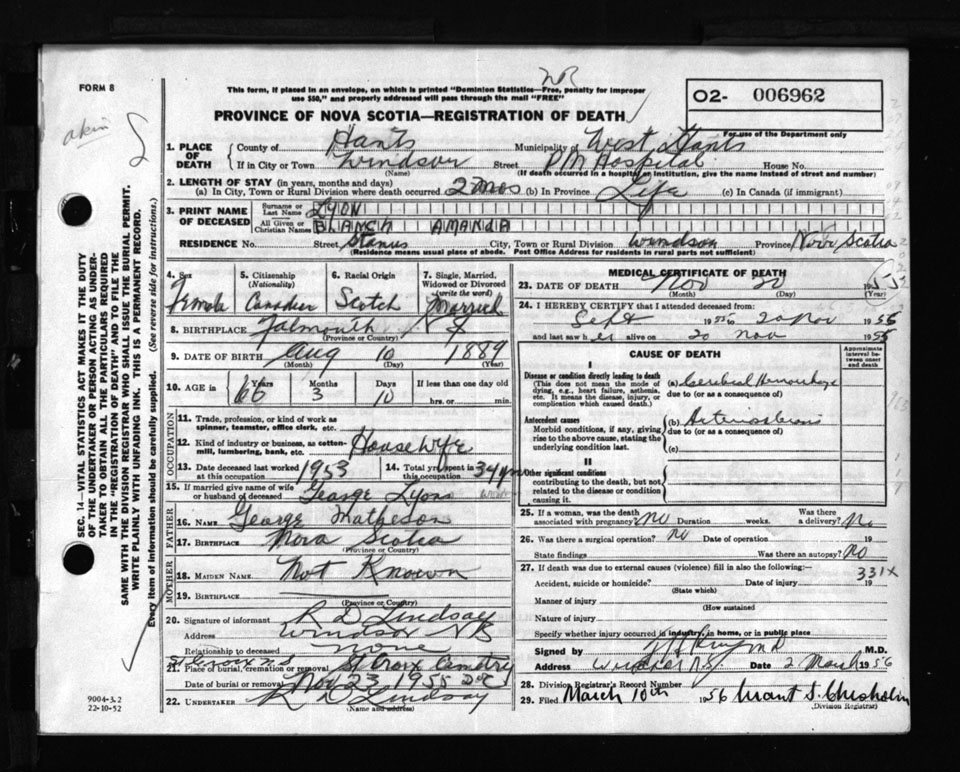 FORM 8
NB
This form, if placed in an envelope, on which is printed "Dominion Statistics—Free, penalty for improper
use $50," and properly addressed will pass through the mail "FREE"
O2- 006962
For use of the Department only
PROVINCE OF NOVA SCOTIA—REGISTRATION OF DEATH
1. PLACE OF DEATH County of Hants Municipality of West Hants
If in City or Town Windsor Street PM Hospital House No.
(Name) (If death occurred in a hospital or institution, give the name instead of street and number)
2. LENGTH OF STAY (in years, months and days)
(a) In City, Town or Rural Division where death occurred 2 mos (b) In Province Life (c) In Canada (if immigrant)
3. PRINT NAME OF DECEASED Surname or Last Name LYON
All Given or Christian Names BLANCH AMANDA
RESIDENCE No. Street, City, Town or Rural Division Windsor Province Nova Scotia
(Residence means usual place of abode. Post Office Address for residents in rural parts not sufficient)
4. Sex Female
5. Citizenship (Nationality) Canadian
6. Racial Origin Scotch
7. Single, Married, Widowed or Divorced (write the word) Married
8. BIRTHPLACE Falmouth NS
(Province or Country)
9. DATE OF BIRTH Aug 10 1889
(Month) (Day) (Year)
10. AGE in 66 Years 3 Months 10 Days If less than one day old
hrs. or min.
OCCUPATION
11. Trade, profession, or kind of work as
spinner, teamster, office clerk, etc.
12. Kind of industry or business, as cotton-
mill, lumbering, bank, etc. Housewife
13. Date deceased last worked at this occupation 1953 14. Total yrs. spent in 34 yrs
15. If married give name of wife or husband of deceased George Lyon
FATHER
16. NAME George Matheson
17. BIRTHPLACE Nova Scotia
(Province or Country)
MOTHER
18. MAIDEN NAME Not Known
19. BIRTHPLACE
(Province or Country)
20. Signature of informant R D Lindsay
Address Windsor NS
Relationship to deceased none
21. Place of burial, cremation or removal St Croix Cemetry
St Croix N S
Date of burial or removal Nov 23 1955
22. UNDERTAKER R D Lindsay
(Name and address)
MEDICAL CERTIFICATE OF DEATH
23. DATE OF DEATH Nov 20 1955
(Month) (Day) (Year)
24. I HEREBY CERTIFY that I attended deceased from:
Sept 1955 to 20 Nov 1955
and last saw her alive on 20 Nov 1955
CAUSE OF DEATH
Approximate interval between onset and death
I
Disease or condition directly leading to death
(This does not mean the mode of
dying, e.g., heart failure, asthenia,
etc. It means the disease, injury, or
complication which caused death.)
(a) Cerebral Hemorrhage
due to (or as a consequence of)
Antecedent causes
Morbid conditions, if any, giving
rise to the above cause, stating the
underlying condition last.
(b) Arteriosclerosis
due to (or as a consequence of)
(c)
II
Other significant conditions
contributing to the death, but not
related to the disease or condition
causing it.
25. If a woman, was the death associated with pregnancy? NO Duration weeks. Was there a delivery? No
26. Was there a surgical operation? NO Date of operation 19
State findings Was there an autopsy? NO
27. If death was due to external causes (violence) fill in also the following:—
331X
Accident, suicide or homicide? Date of injury 19
(State which)
Manner of injury
(How sustained)
Nature of injury
Specify whether injury occurred in industry, in home, or in public place
Signed by M.D.
Address Windsor N.S. Date 2 March 1956
28. Division Registrar's Record Number
29. Filed March 10th 1956 Grant S. Chisholm
(Division Registrar)
SEC. 14—VITAL STATISTICS ACT MAKES IT THE DUTY
OF THE UNDERTAKER OR PERSON ACTING AS UNDER-
TAKER TO OBTAIN ALL THE PARTICULARS REQUIRED
IN THE "REGISTRATION OF DEATH" AND TO FILE THE
SAME WITH THE DIVISION REGISTRAR WHO SHALL ISSUE THE BURIAL PERMIT.
WRITE PLAINLY WITH UNFADING INK. THIS IS A PERMANENT RECORD.
Every item of Information should be carefully supplied. (See reverse side for instructions.)
9004-3.2
22-10-52